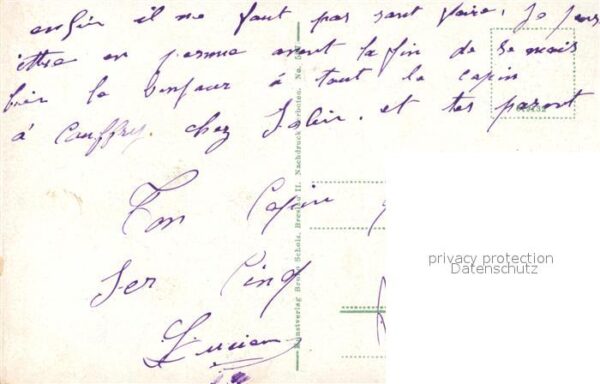 enfin il ne faut pas sant faire, je peus
ittre en perme avant la fin de se mois
bien le bonjour à tout le copin
à Cauffry. chez Jolin. et tes parent
Ton Copin
Ser Cinq
Lucien
Kunstverlag Bruno Scholz, Breslau II. Nachdruck verboten. No.
privacy protection
Datenschutz